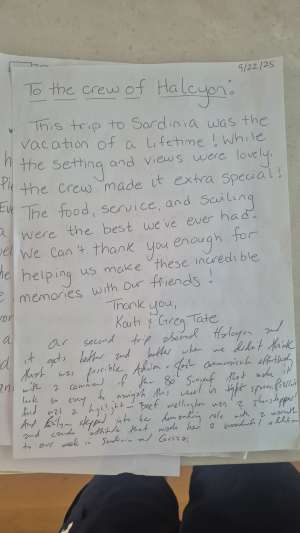 9/22/25
To the crew of Halcyon:
This trip to Sardinia was the
vacation of a lifetime! While
the setting and views were lovely.
the crew made it extra special!
The food, service, and sailing
were the best we've ever had.
We can't thank you enough for
helping us make these incredible
memories with our friends!
Thank you,
& Greg Tate
Our second trip aboard Halcyon and
it gets better and better when we didn't think
that was possible. communicate effortlessly
with a command of the 80' that made it
look so easy to navigate this vessel in tight
food was a highlight - Beef wellington was a
And stepped into her role with a
and attitude that made her a wonderful addition
to our week in Sardinia and Corsica.